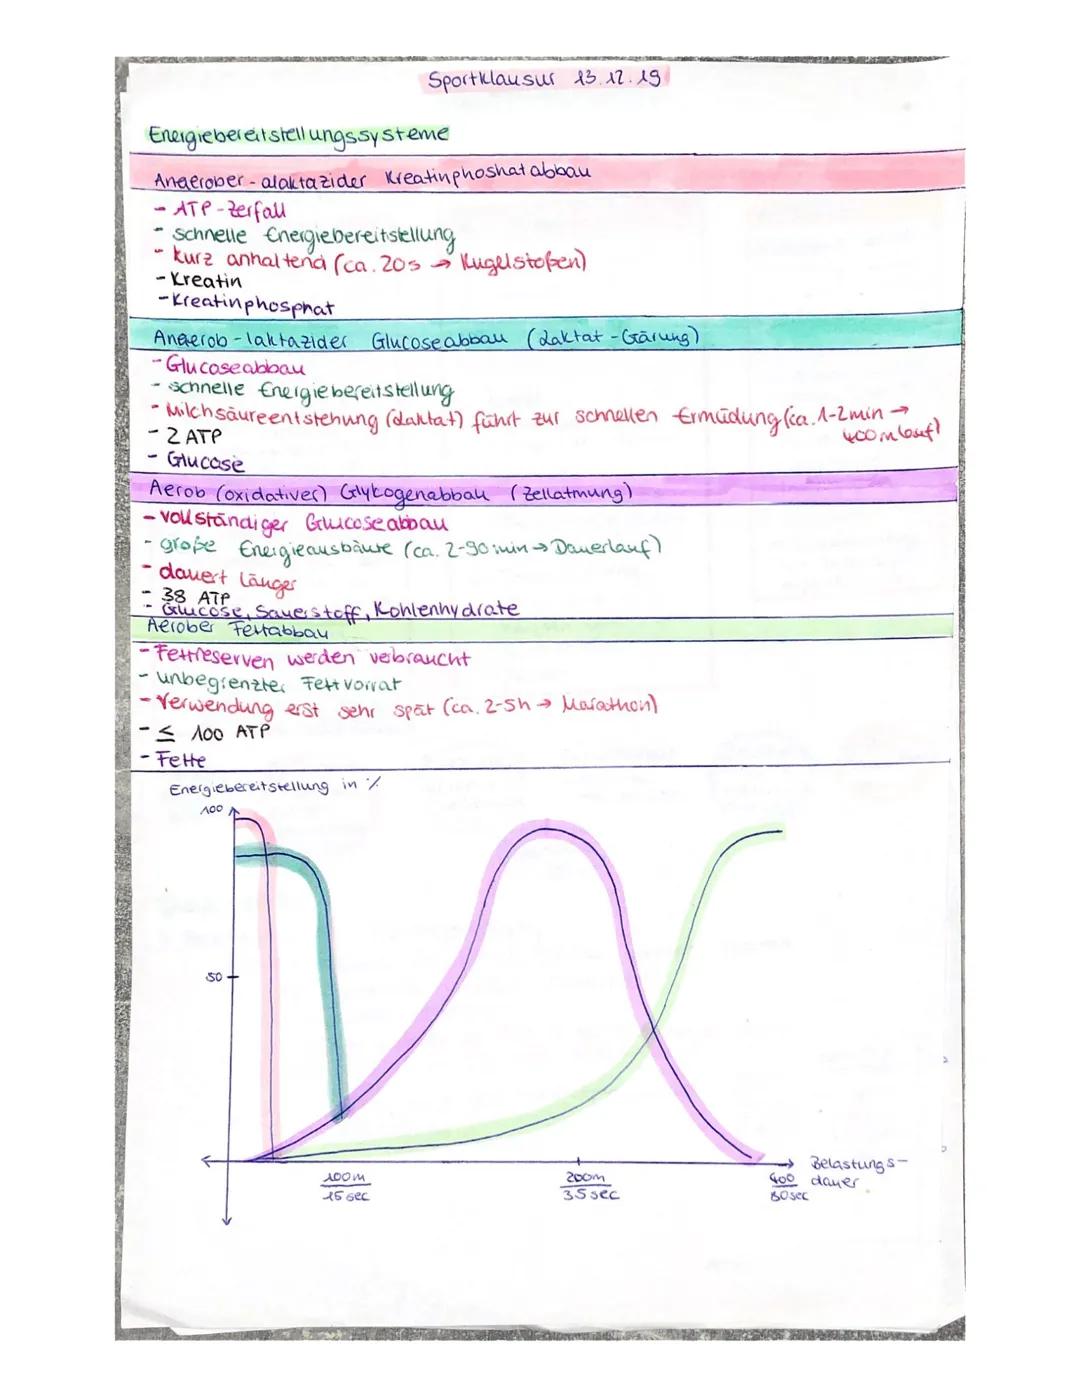 Sportklausur 13.12.19
Energiebereitstellungssysteme
Anaerober-alaktazider Kreatinphoshatabbau
- ATP-Zerfall
- schnelle Energiebereitstellung
- kurz anhaltend (ca. 20s → Kugelstoßen)
- Kreatin
- Kreatinphosphat
Anaerob-laktazider Glucoseabbau (Laktat-Gärung)
- Glucoseabbau
- schnelle Energiebereitstellung
- Milchsäureentstehung (Laktat) führt zur schnellen Ermüdung (ca. 1-2min →
400m lauf)
- 2 ATP
- Glucose
Aerob (oxidativer) Glykogenabbau (Zellatmung)
- vollständiger Glucoseabbau
- große Energieausbäute (ca. 2-90min → Dauerlauf)
- dauert länger
- 38 ATP
- Glucose, Sauerstoff, Kohlenhydrate
Aerober Fettabbau
- Fettreserven werden verbraucht
- unbegrenzter Fettvorrat
- Verwendung erst sehr spät (ca. 2-5h → Marathon)
- ≤ 100 ATP
- Fette
Energiebereitstellung in %
100
50
100m
15sec
200m
35sec
400
80sec
Belastungs-
dauer